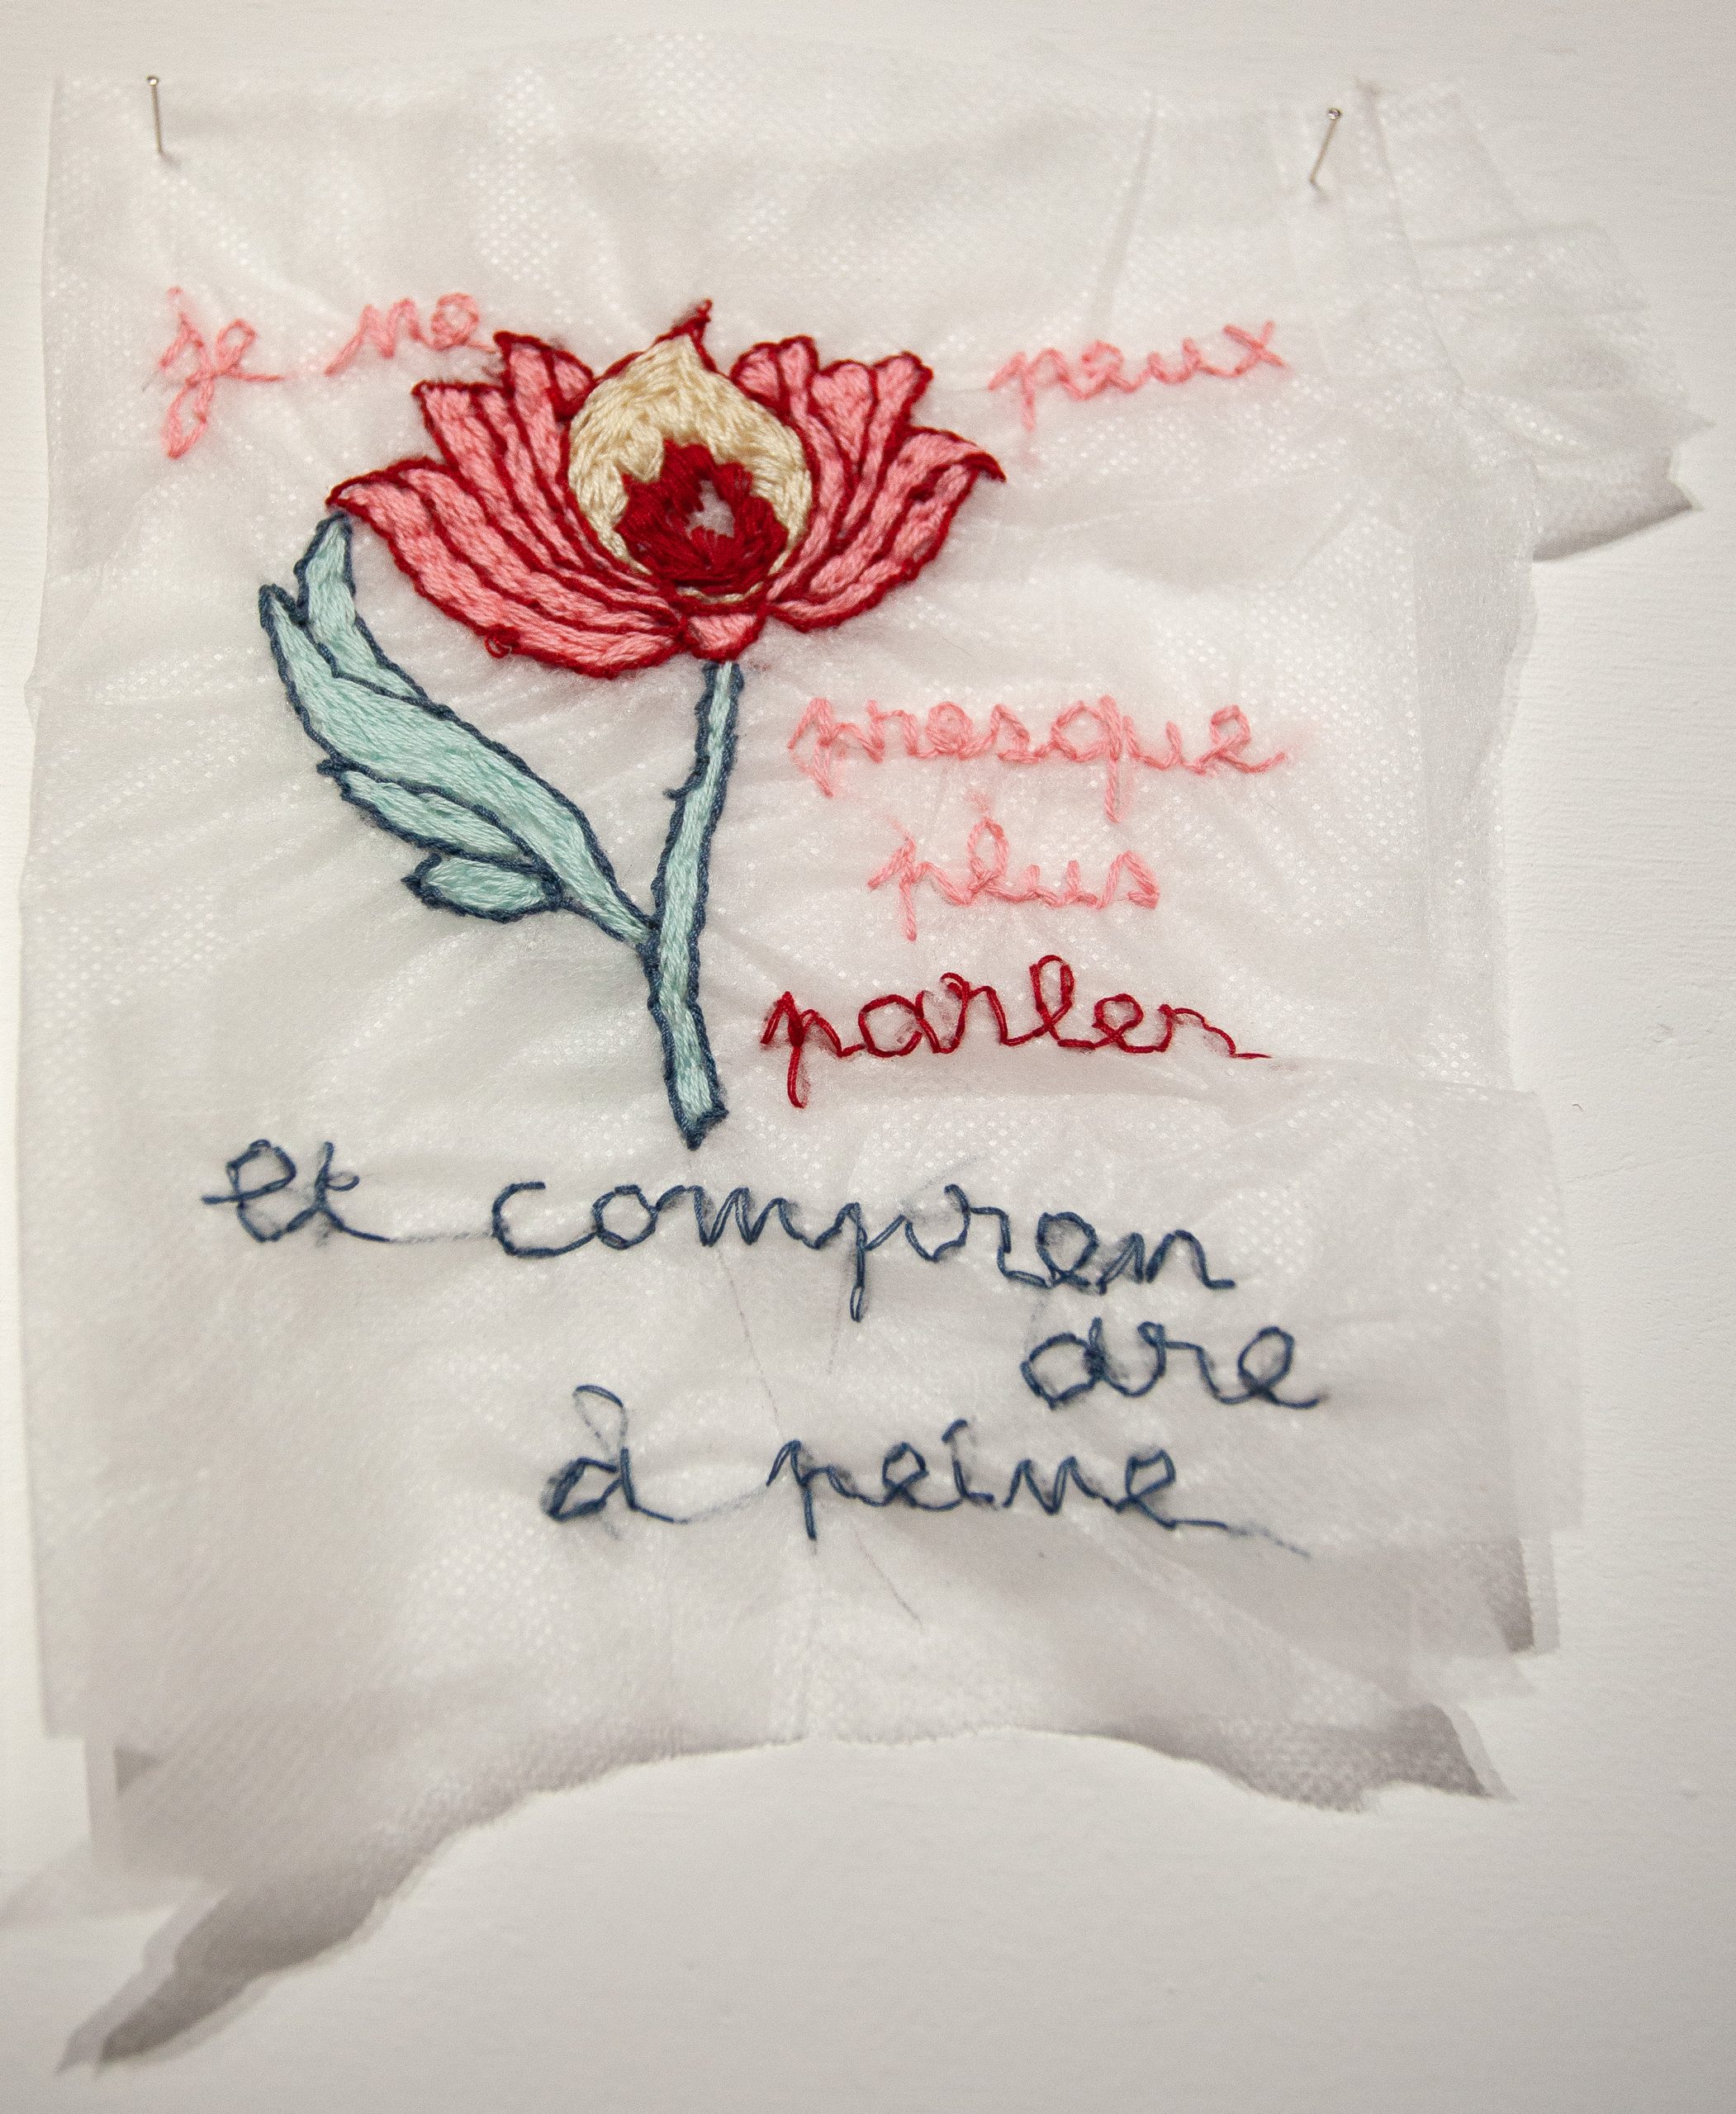 je ne peux
presque
plus
parler
et compren
dre
à peine